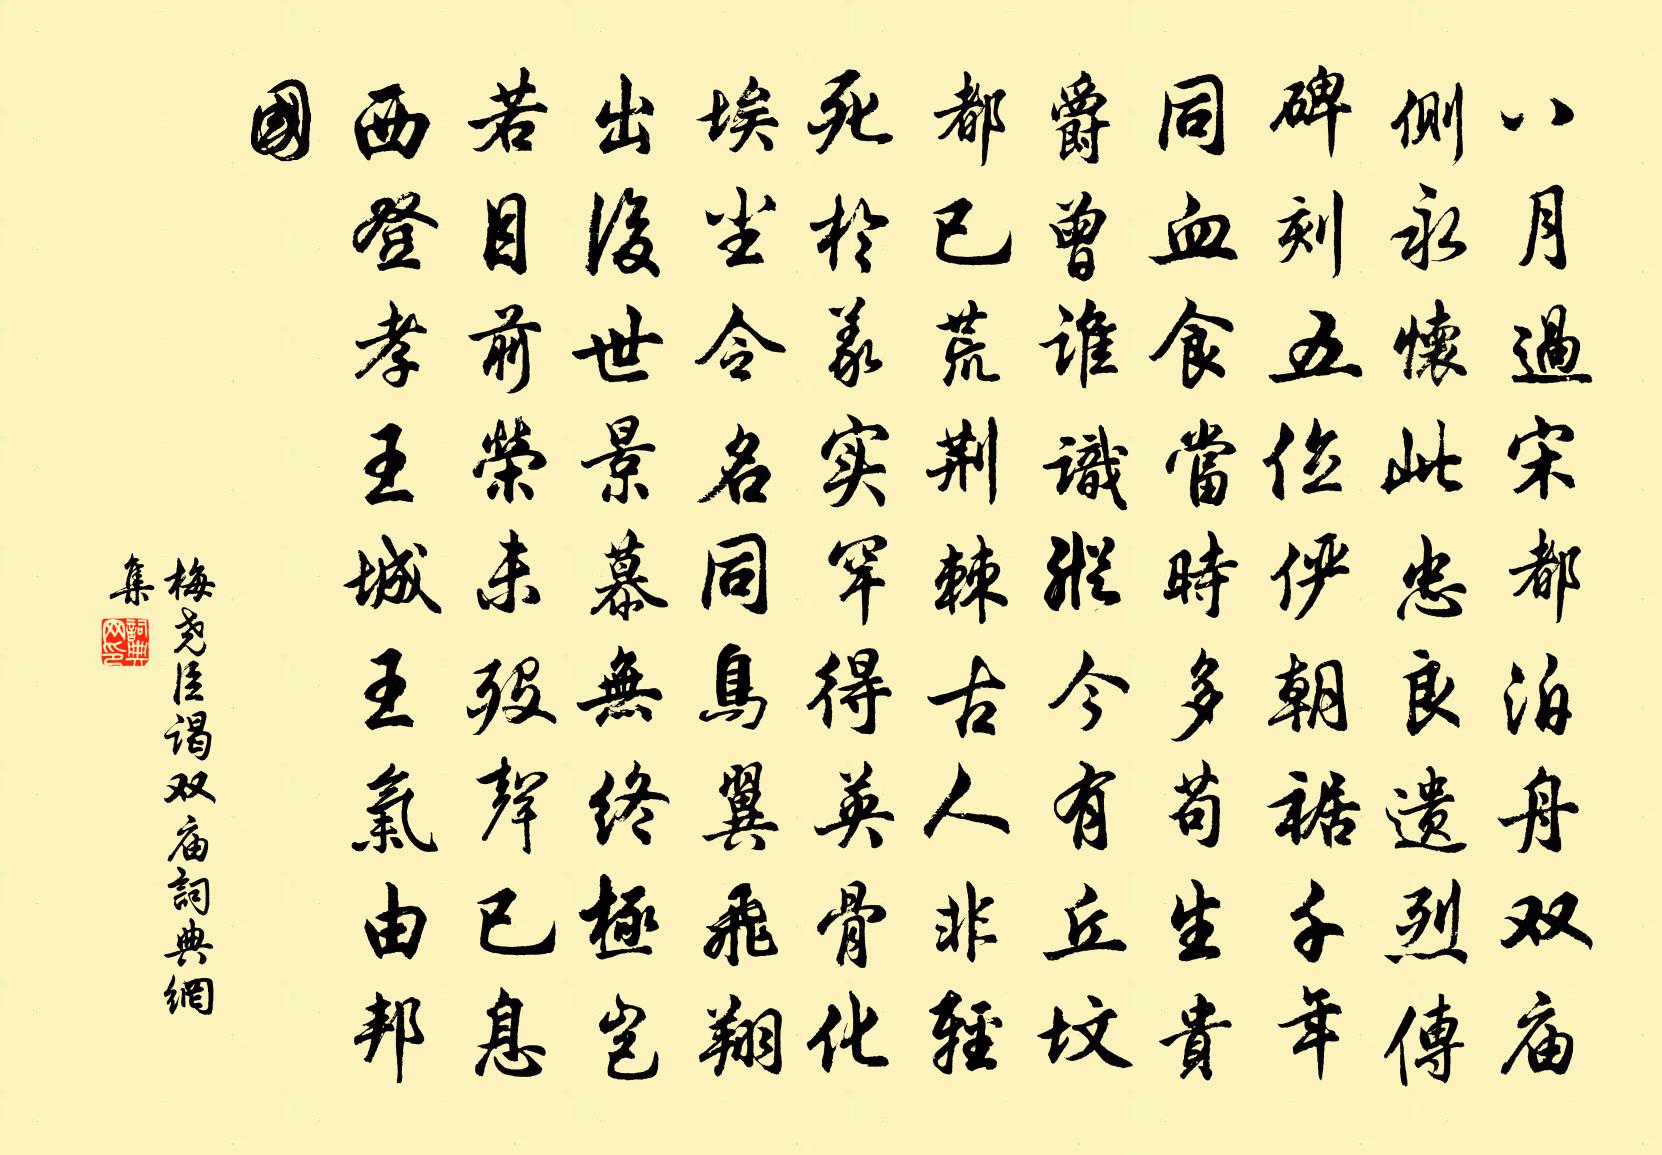 八月過宋都泊舟双庙
側永懷此忠良遗烈傳
碑刻五位俨朝裾千年
同血食當時多苟生貴
爵曾誰識縱今有丘坟
都已荒荆棘古人非輕
死於義实罕得英骨化
埃尘令名同鳥翼飛翔
出後世景慕無终極岂
若目前榮未歿聲已息
西登孝王城王氣由邦
國
梅尧臣谒双庙詞典網
集
詞典网印